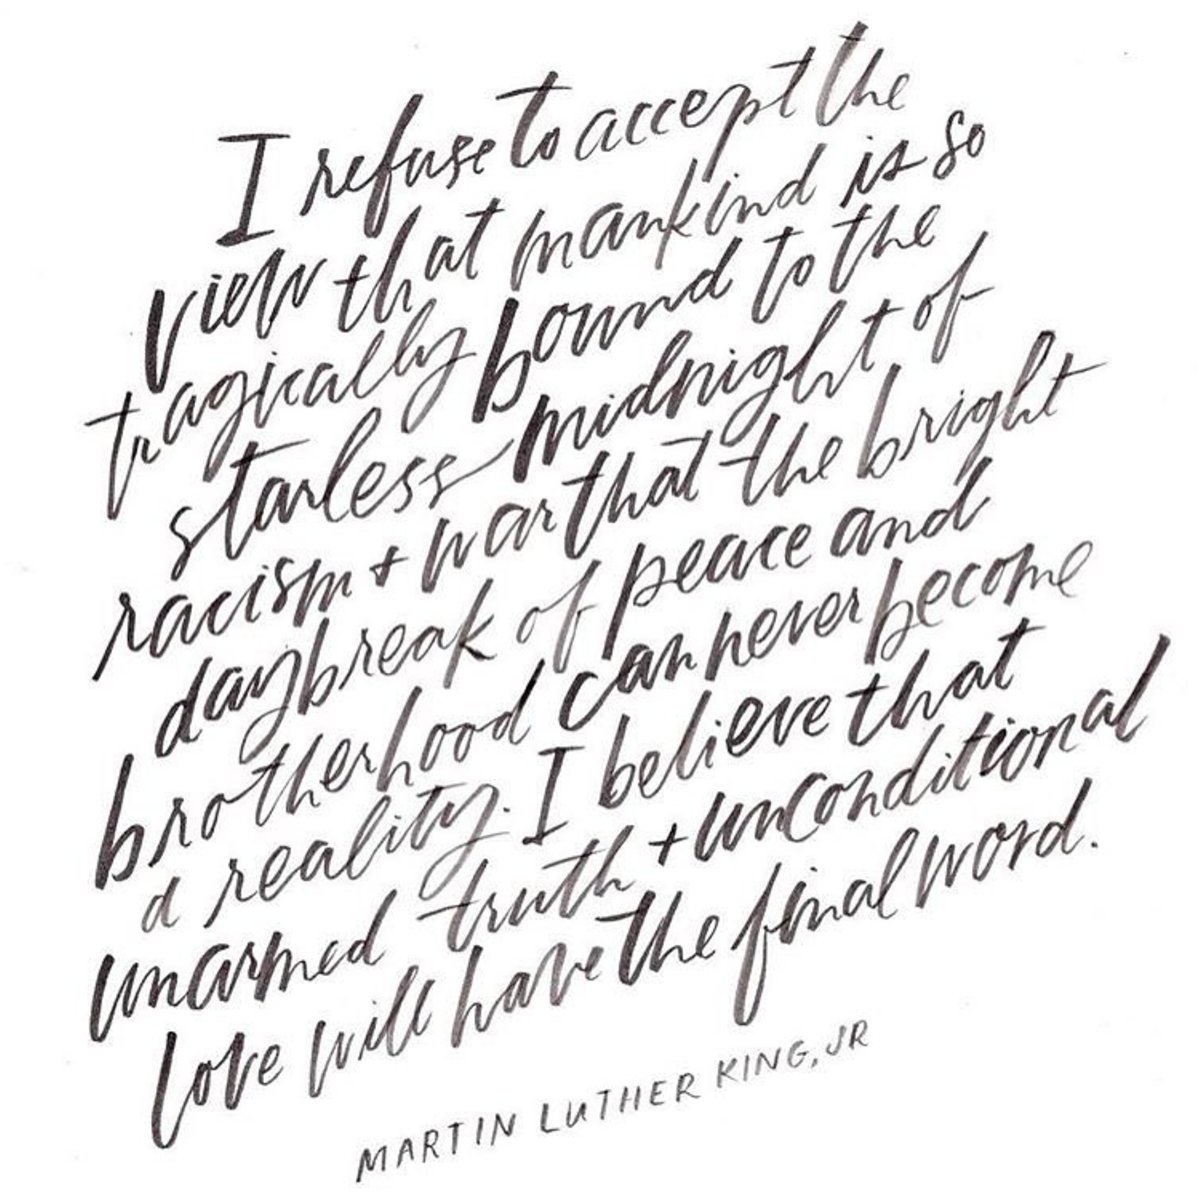 I refuse to accept the
view that mankind is so
tragically bound to the
starless midnight of
racism + war that the bright
daybreak of peace and
brotherhood can never become
a reality. I believe that
unarmed truth + unconditional
love will have the final word.
MARTIN LUTHER KING, JR